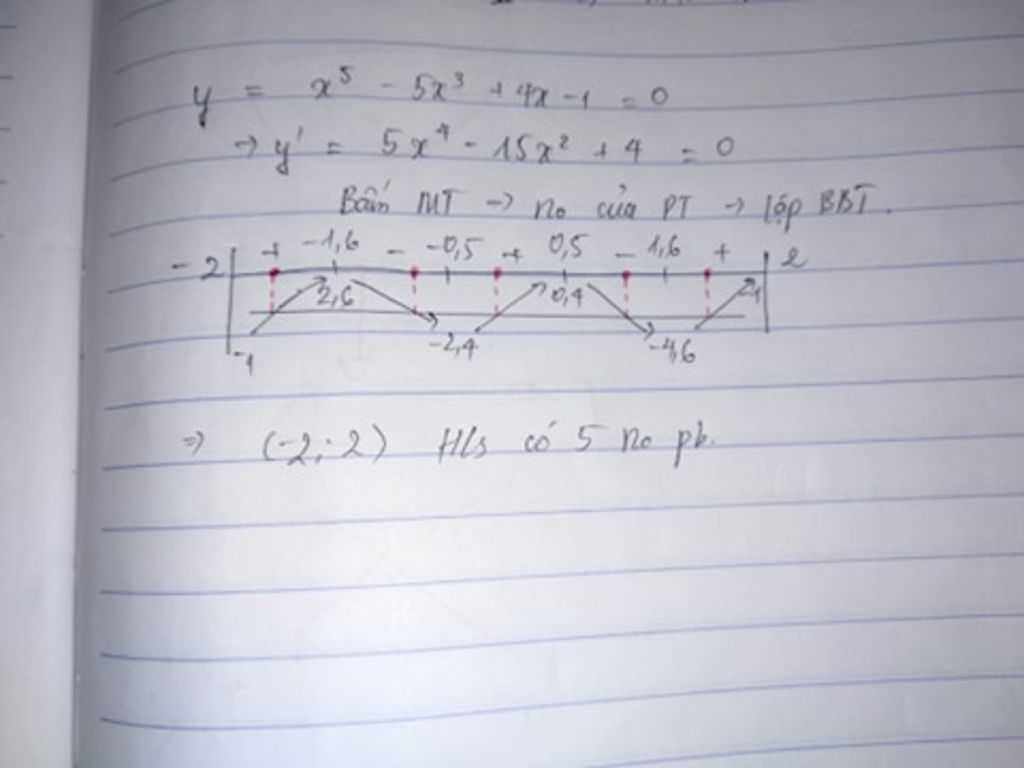 y = x⁵ - 5x³ + 4x - 1 = 0
→ y' = 5x⁴ - 15x² + 4 = 0
Bấm MT → no của PT → lập BBT.
-2 + -1,6 - -0,5 + 0,5 - 1,6 + 2
2,6 0,4
-1 -2,4 -4,6
⇒ (-2; 2) Hls có 5 no pb.